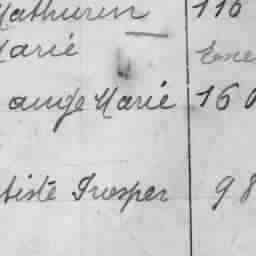 Mathurin 116
Marie
ange Marie 160
tiste Prosper 98